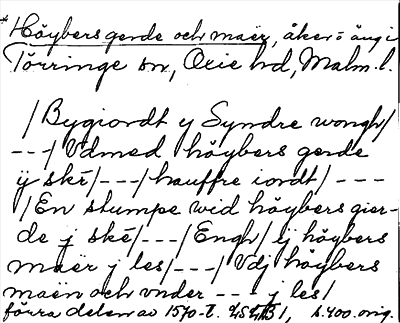 *Höybers gerde och maër, åker o äng i
Törringe sn, Oxie hd, Malm. l.
/Bygiordt y Syndre wongh/
---/Vdmed höybers gerde
ÿ skë/---/hauffre iordt/---
/En stumpe wid höybers gier-
de j skë/---/Engh/ ij höybers
maër j les/---/Vdj höybers
maën och vnder --- j les/
förra delen av 1570-t. s. 400. orig.